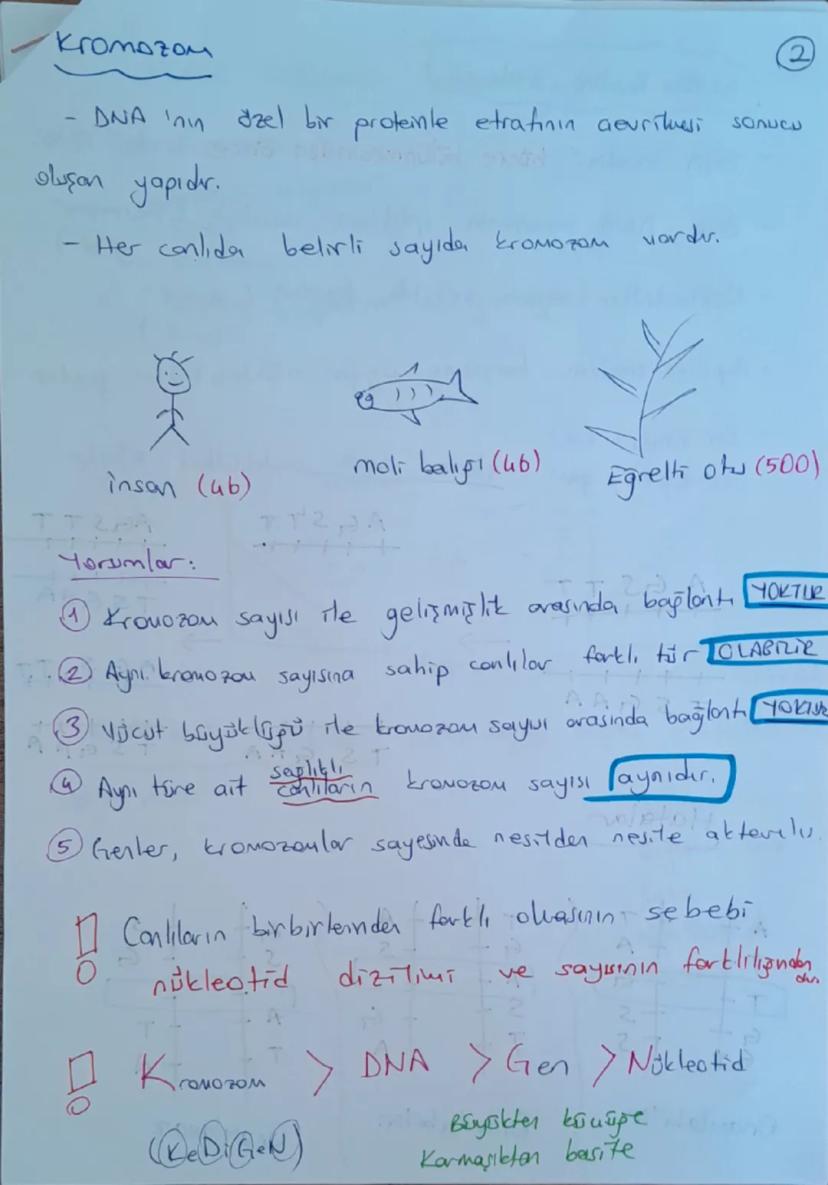 Kromozom
2
- DNA 'nın özel bir proteinle etrafının çevrilmesi sonucu
oluşan yapıdır.
- Her canlıda belirli sayıda kromozom vardır.
insan (46)
moli balığı (46)
Eğrelti otu (500)
Yorumlar:
1 Kromozom sayısı ile gelişmişlik arasında bağlantı YOKTUR
2 Aynı kromozom sayısına sahip canlılar farklı tür OLABİLİR
3 Vücut büyüklüğü ile kromozom sayısı arasında bağlantı YOKTUR
4 Aynı türe ait sağlıklı canlıların kromozom sayısı aynıdır.
5 Genler, kromozomlar sayesinde nesilden nesile aktarılır.
! Canlıların birbirlerinden farklı olmasının sebebi
nükleotid dizilimi ve sayısının farklılığındandır.
! Kromozom > DNA > Gen > Nükleotid
(KeDiGeN)
Büyükten küçüğe
Karmaşıktan basite